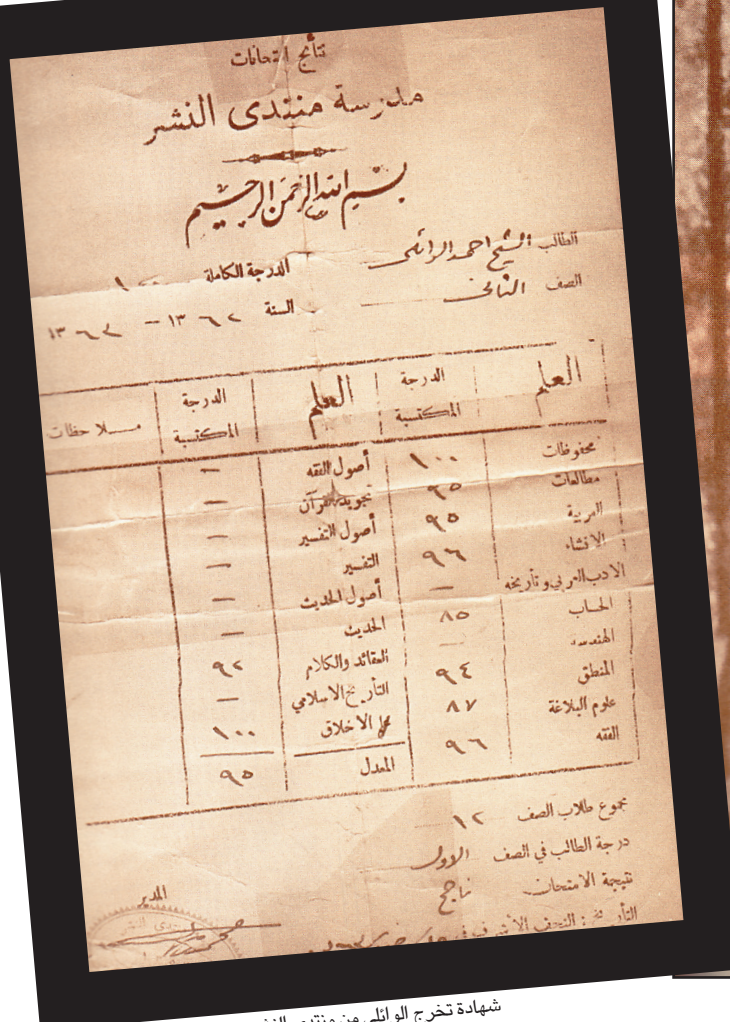 نتائج امتحانات
مدرسة منتدى النشر
بسم الله الرحمن الرحيم
الطالب الشيخ احمد الوائلي الدرجة الكاملة ١٠٠
الصف الثاني السنة ١٣٦٢ – ١٣٦٣
العلم الدرجة المكتسبة العلم الدرجة المكتسبة ملاحظات
محفوظات ١٠٠ أصول الفقه —
مطالعات ٩٥ تجويد القرآن —
العربية ٩٥ أصول التفسير —
الانشاء ٩٦ التفسير —
الادب العربي وتأريخه — أصول الحديث —
الحساب ٨٥ الحديث —
الهندسه — العقائد والكلام ٩٢
المنطق ٩٤ التأريخ الاسلامي —
علوم البلاغة ٨٧ الاخلاق ١٠٠
الفقه ٩٦ المعدل ٩٥
مجموع طلاب الصف ١٢
درجة الطالب في الصف الاول
نتيجة الامتحان ناجح
المدير
التأريخ: النجف الأشرف في
شهادة تخرج الوائلي من منتدى